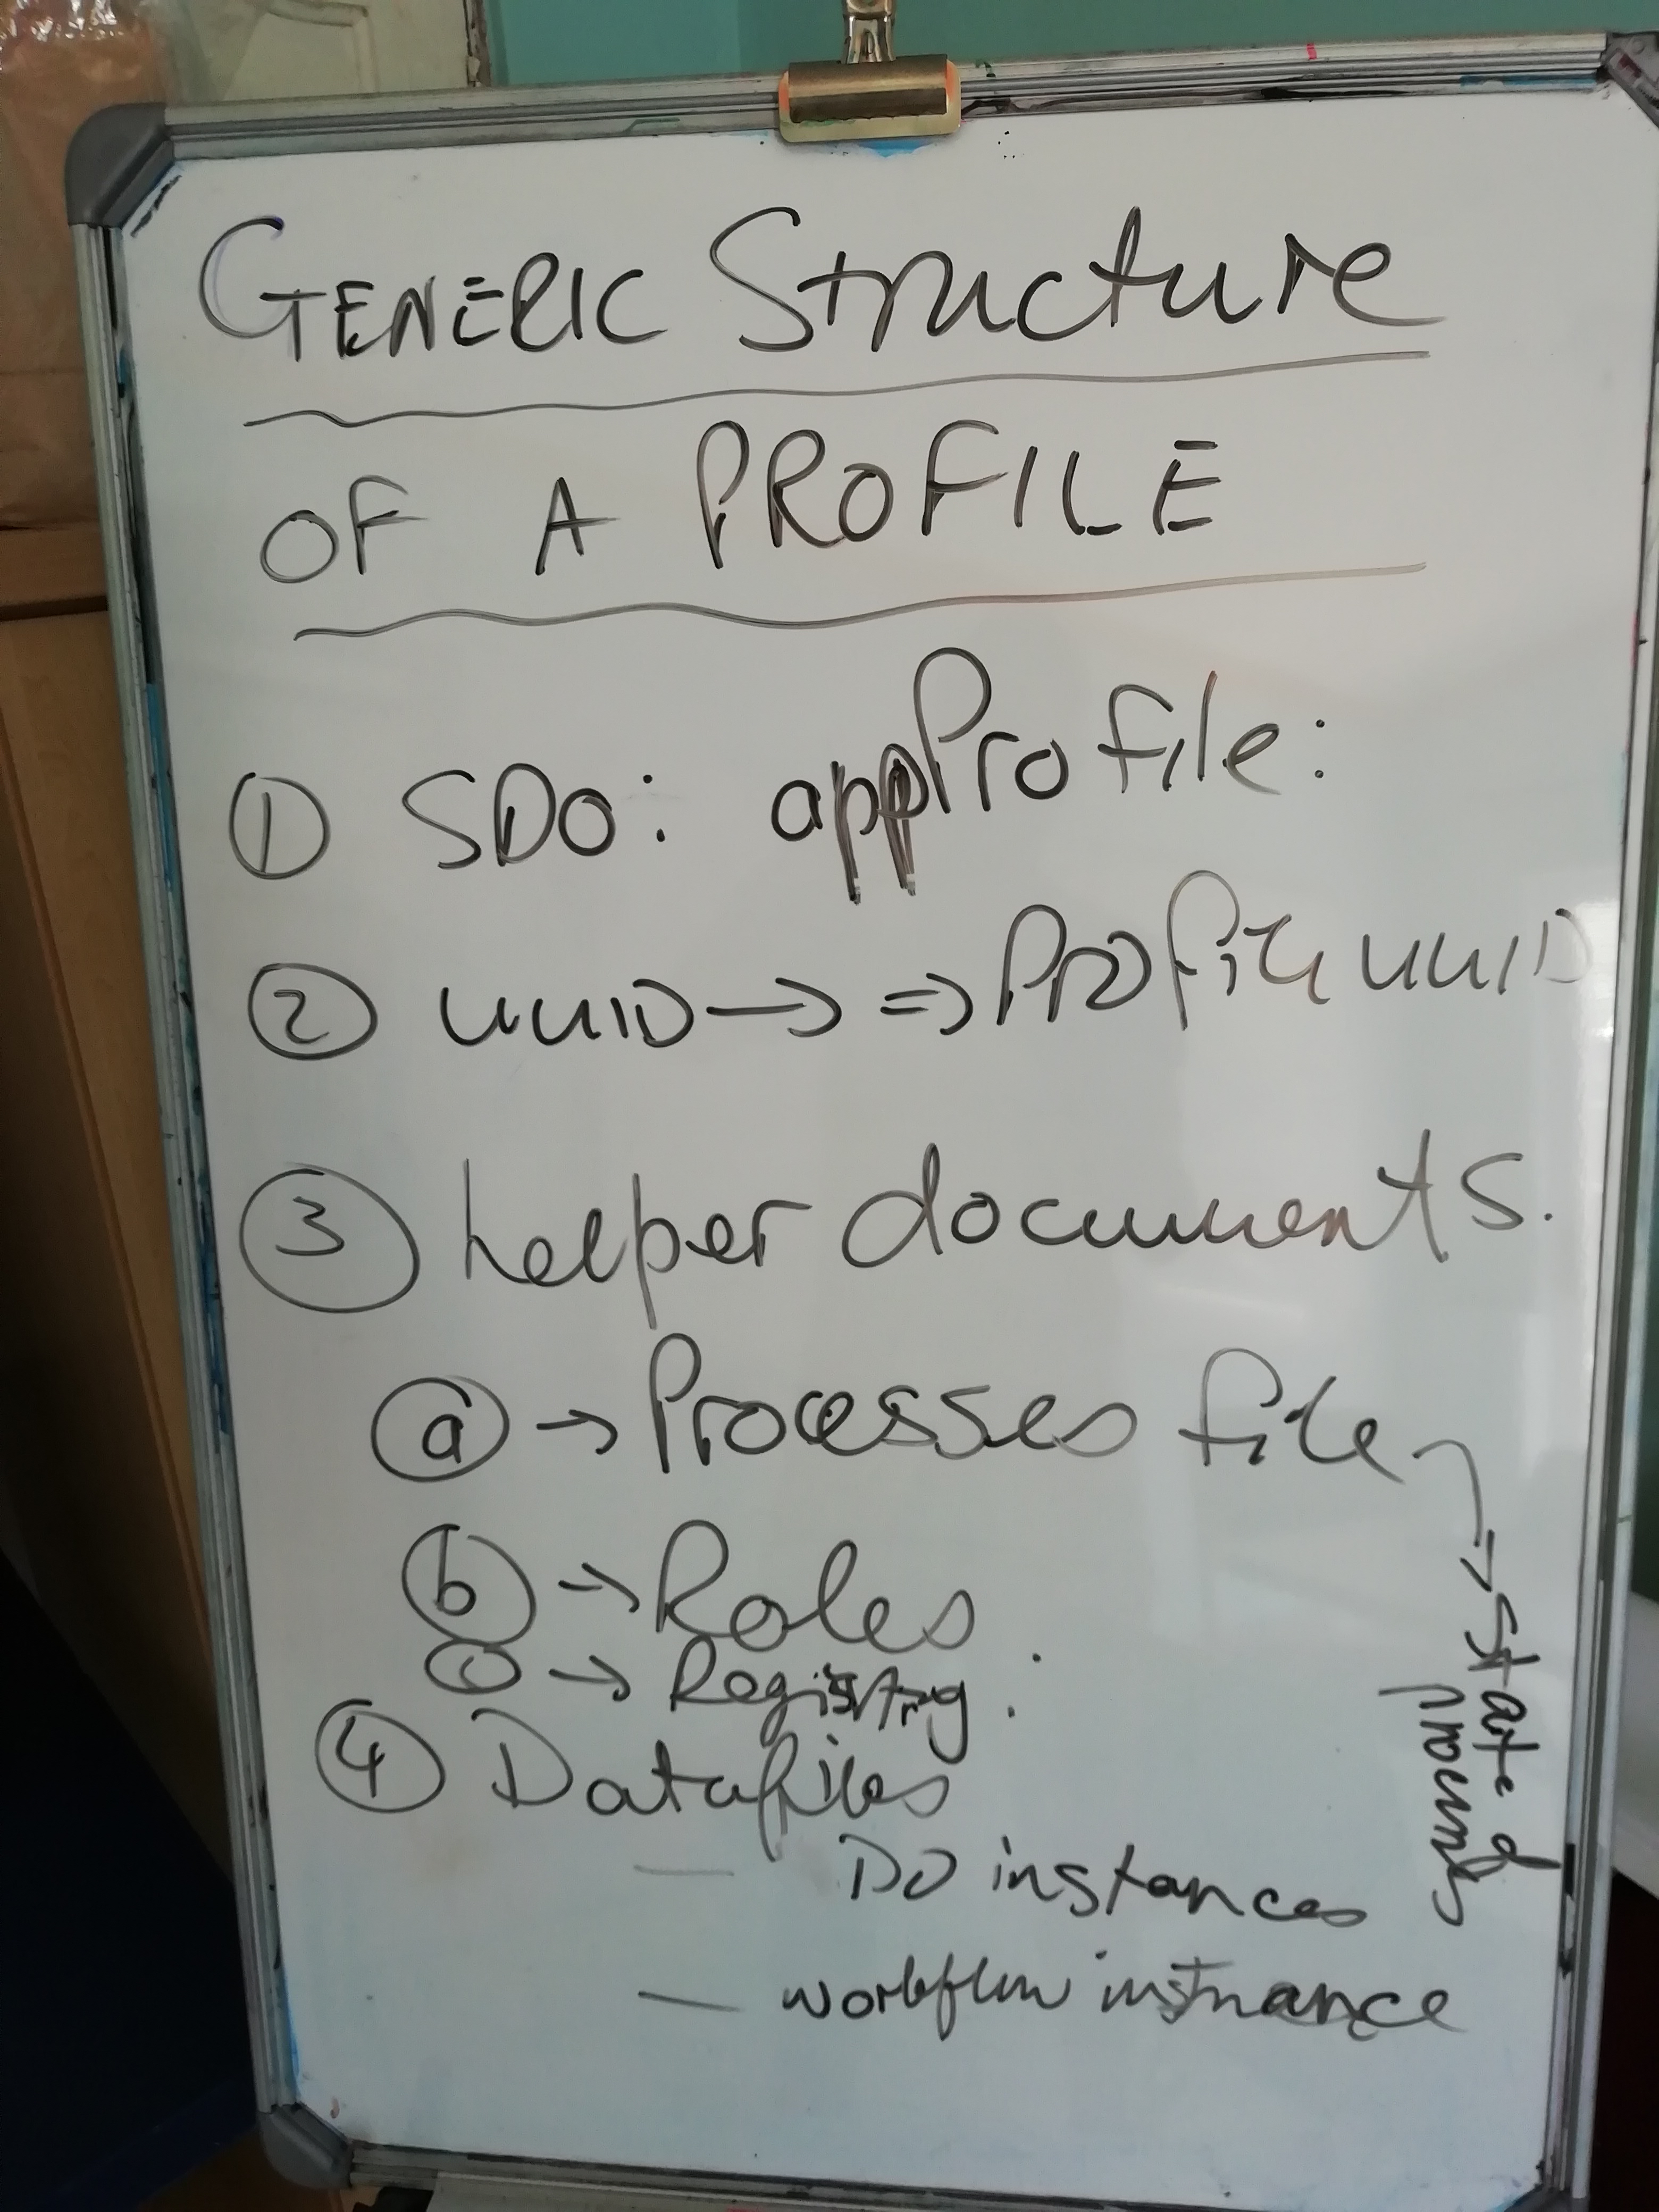 GENERIC Structure
OF A PROFILE
① SDO: appProfile:
② UUID → ⇒ Profile UUID
③ helper documents.
ⓐ → Processes file
ⓑ → Roles
ⓒ → Registry:
④ Datafiles
— DO instances
— workflow instnance
→ state d